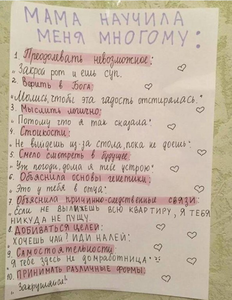 МАМА НАУЧИЛА
МЕНЯ МНОГОМУ:
1. Преодолевать невозможное:
"Закрой рот и ешь суп.
2. Верить в Бога:
"Молись, чтобы эта гадость отстиралась."
3. Мыслить логично:
"Потому что я так сказала."
4. Стойкости:
"Не выйдешь из-за стола, пока не доешь."
5. Смело смотреть в будущее:
"Ну погоди, дома я тебе устрою"
6. Объяснила основы генетики:
"Это у тебя в отца"
7. Объяснила причинно-следственные связи:
"Если не вылижешь всю квартиру, я тебя
никуда не пущу.
8. ДОБИВАТЬСЯ ЦЕЛЕЙ:
ХОЧЕШЬ ЧАЙ? ИДИ НАЛЕЙ.
9. Самостоятельности:
"Я тебе здесь не домработница"
10. ПРИНИМАТЬ РАЗЛИЧНЫЕ ФОРМЫ: